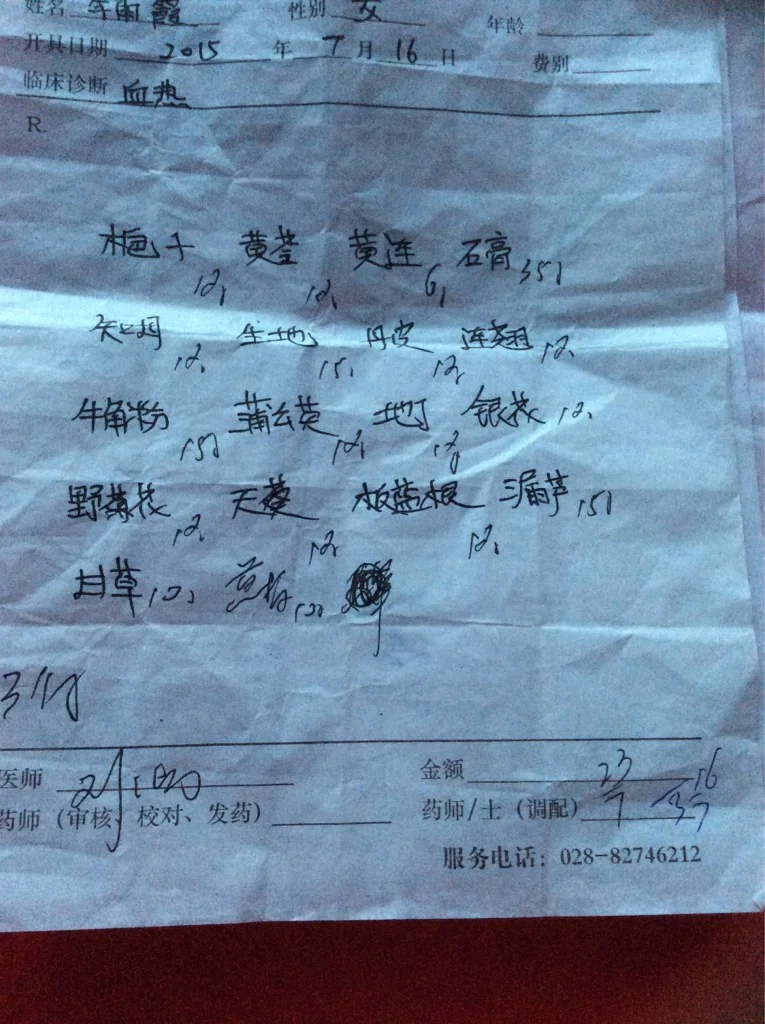 姓名 李雨霞 性别 女 年龄
开具日期 2015 年 7 月 16 日 费别
临床诊断 血热
R.
栀子 12, 黄芩 12, 黄连 6, 石膏 35g
知母 12, 生地 15, 丹皮 12, 连翘 12,
牛角粉 15g 蒲公英 12, 地丁 12g 银花 12,
野菊花 12, 天葵 12, 板蓝根 12, 漏芦 15g
甘草 10g
3付
医师 金额 23
药师（审核、校对、发药） 药师/士（调配） 7
服务电话：028-82746212